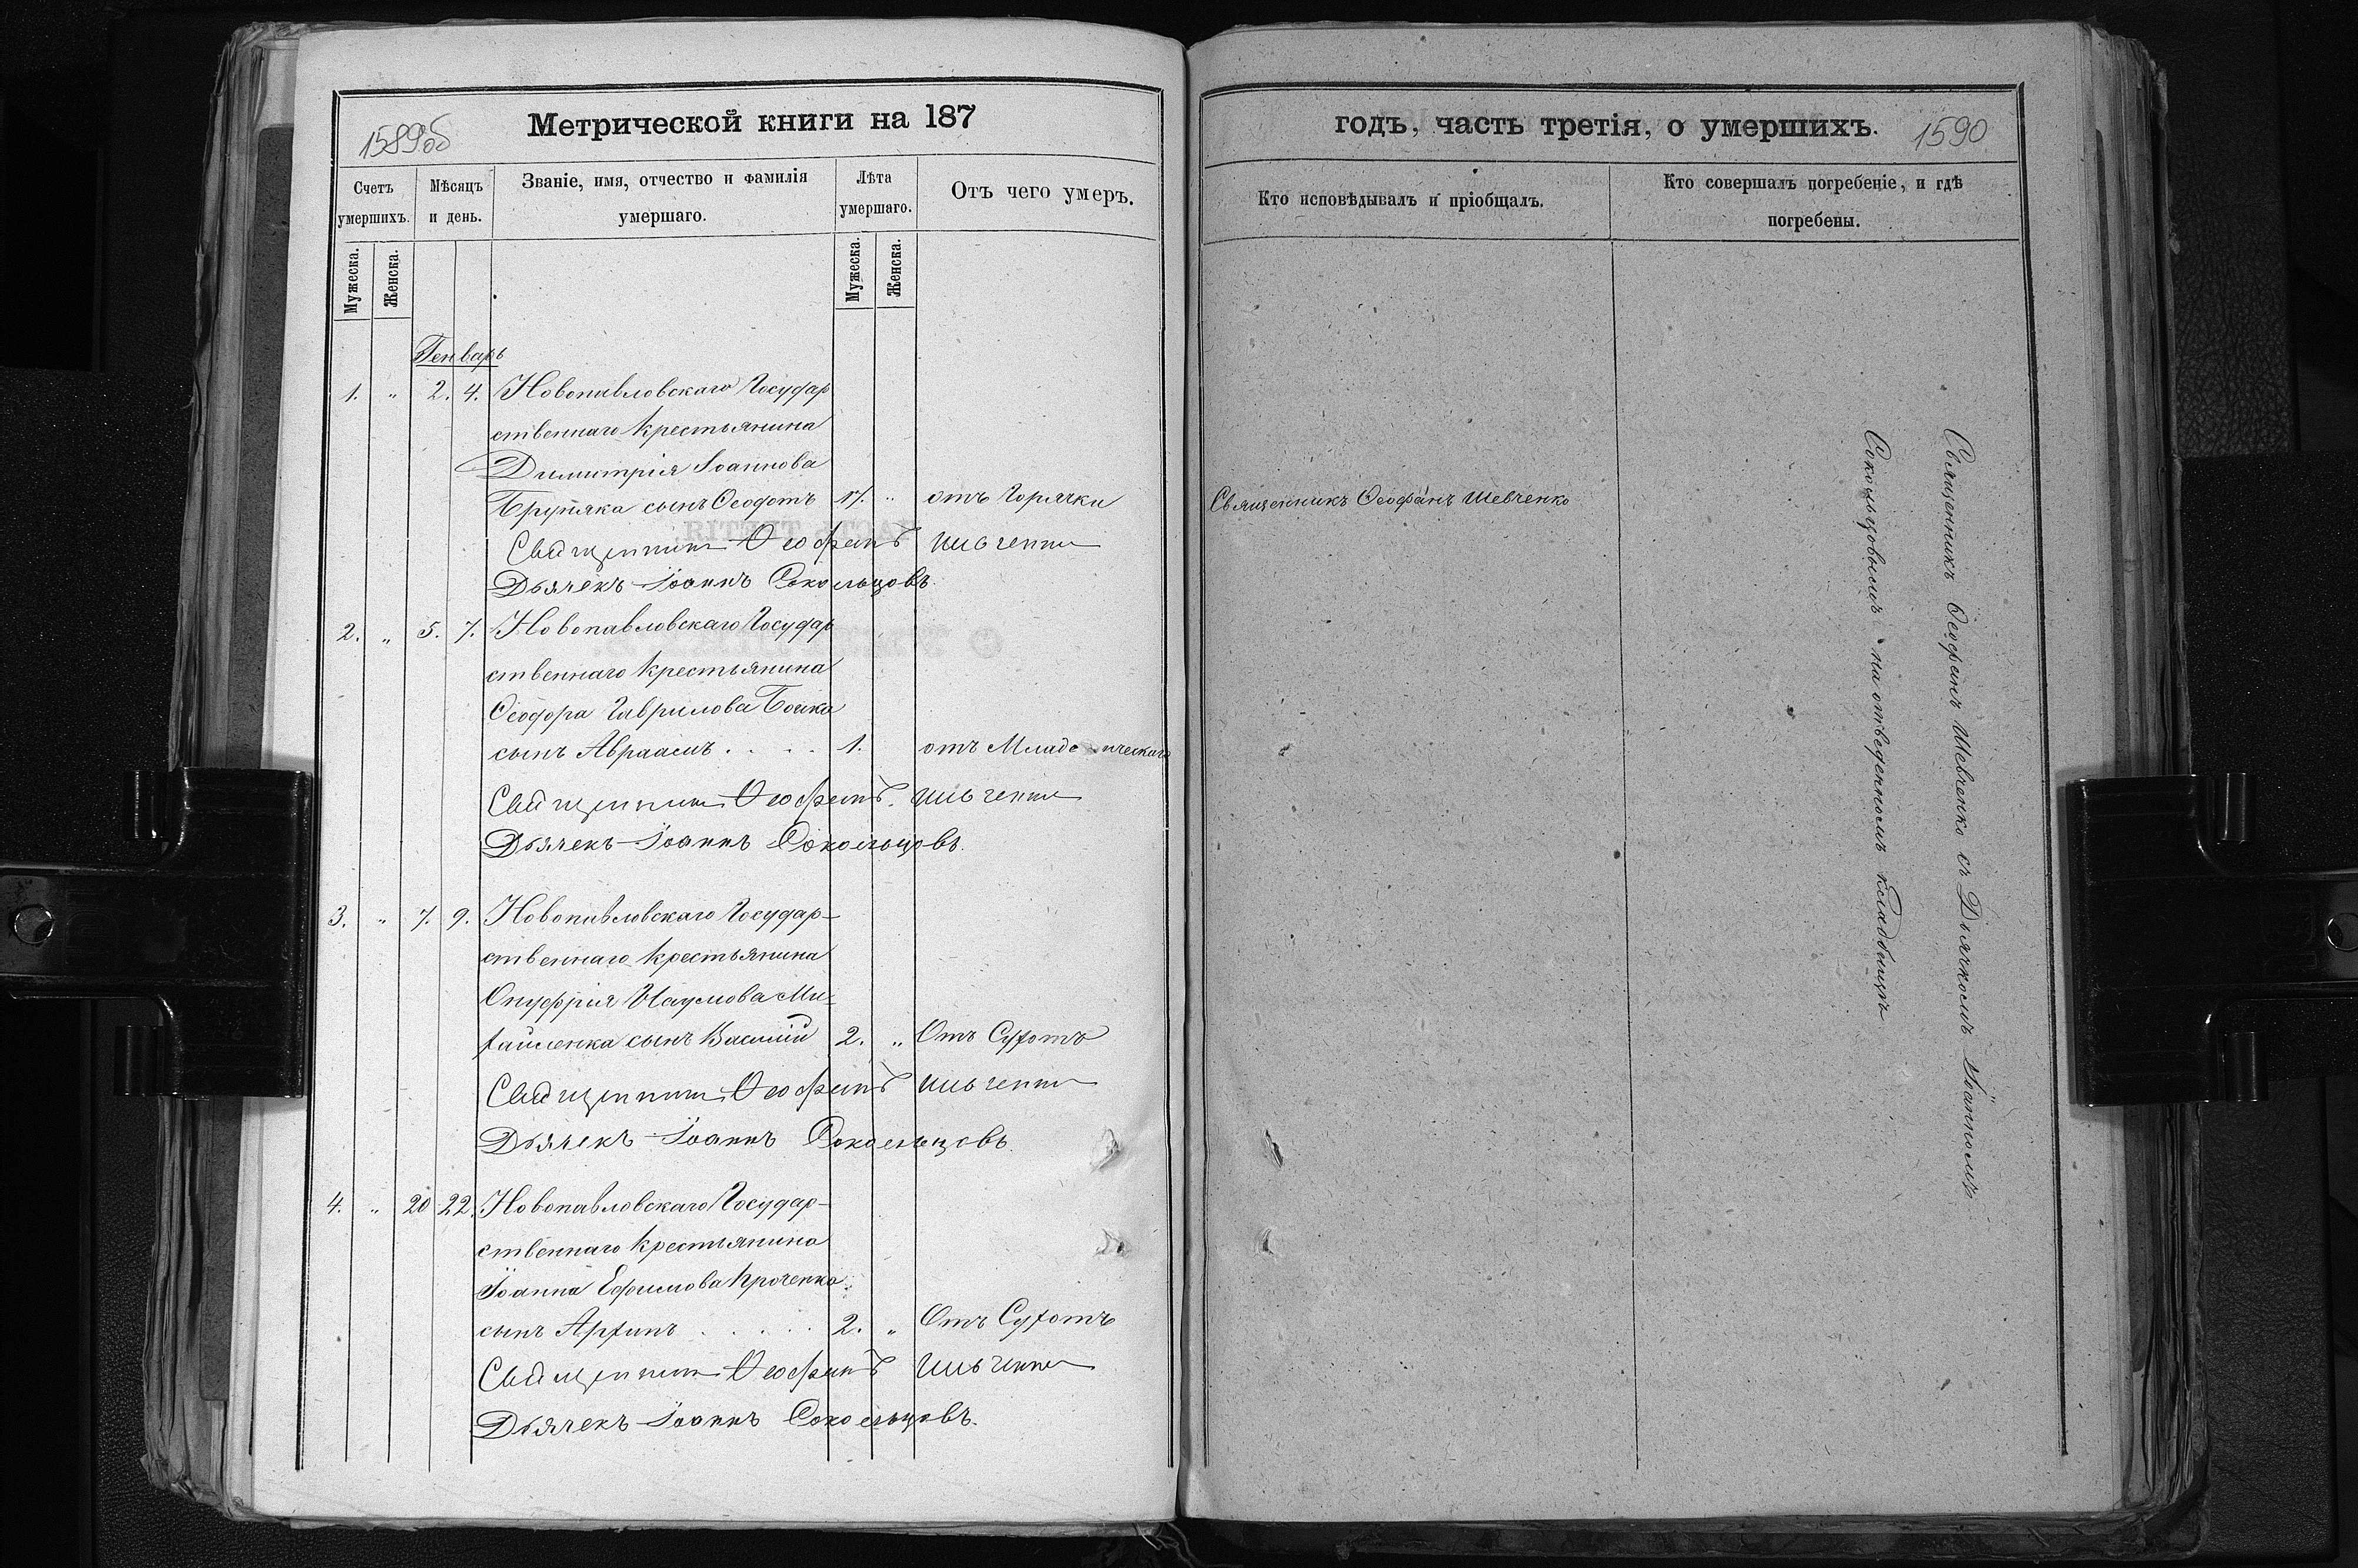 1589об
Метрической книги на 187
Счетъ умершихъ.
Мѣсяцъ и день.
Званіе, имя, отчество и фамилія умершаго.
Лѣта умершаго.
Отъ чего умеръ.
Мужеска.
Женска.
Мужеска.
Женска.
Генварь
1. " 2. 4. Новопавловскаго Государ
ственнаго крестьянина
Димитрія Іоаннова
сынъ Ѳеодотъ 17. " отъ Горячки
Священникъ Ѳеофанъ Шевченко
Дьячекъ Іоаннъ Сокольцовъ.
2. " 5. 7. Новопавловскаго Государ
ственнаго крестьянина
Ѳеодора Гаврилова Бойка
сынъ Авраамъ . . . . 1. отъ
Священникъ Ѳеофанъ Шевченко
Дьячекъ Іоаннъ Сокольцовъ.
3. " 7. 9. Новопавловскаго Государ-
ственнаго крестьянина
Онуфрія Наумова Ми-
хайленка сынъ Василій 2. " Отъ Сухотъ
Священникъ Ѳеофанъ Шевченко
Дьячекъ Іоаннъ Сокольцовъ.
4. " 20 22. Новопавловскаго Государ-
ственнаго крестьянина
Іоанна Ефимова
сынъ Архипъ . . . . . 2. " Отъ Сухотъ
Священникъ Ѳеофанъ Шевченко
Дьячекъ Іоаннъ Сокольцовъ.
годъ, часть третія, о умершихъ.
1590
Кто исповѣдывалъ и пріобщалъ.
Кто совершалъ погребеніе, и гдѣ
погребены.
Священникъ Ѳеофанъ Шевченко
Священникъ Ѳеофанъ Шевченко съ Дьячкомъ Іоанномъ
Сокольцовымъ на отведенномъ кладбищѣ